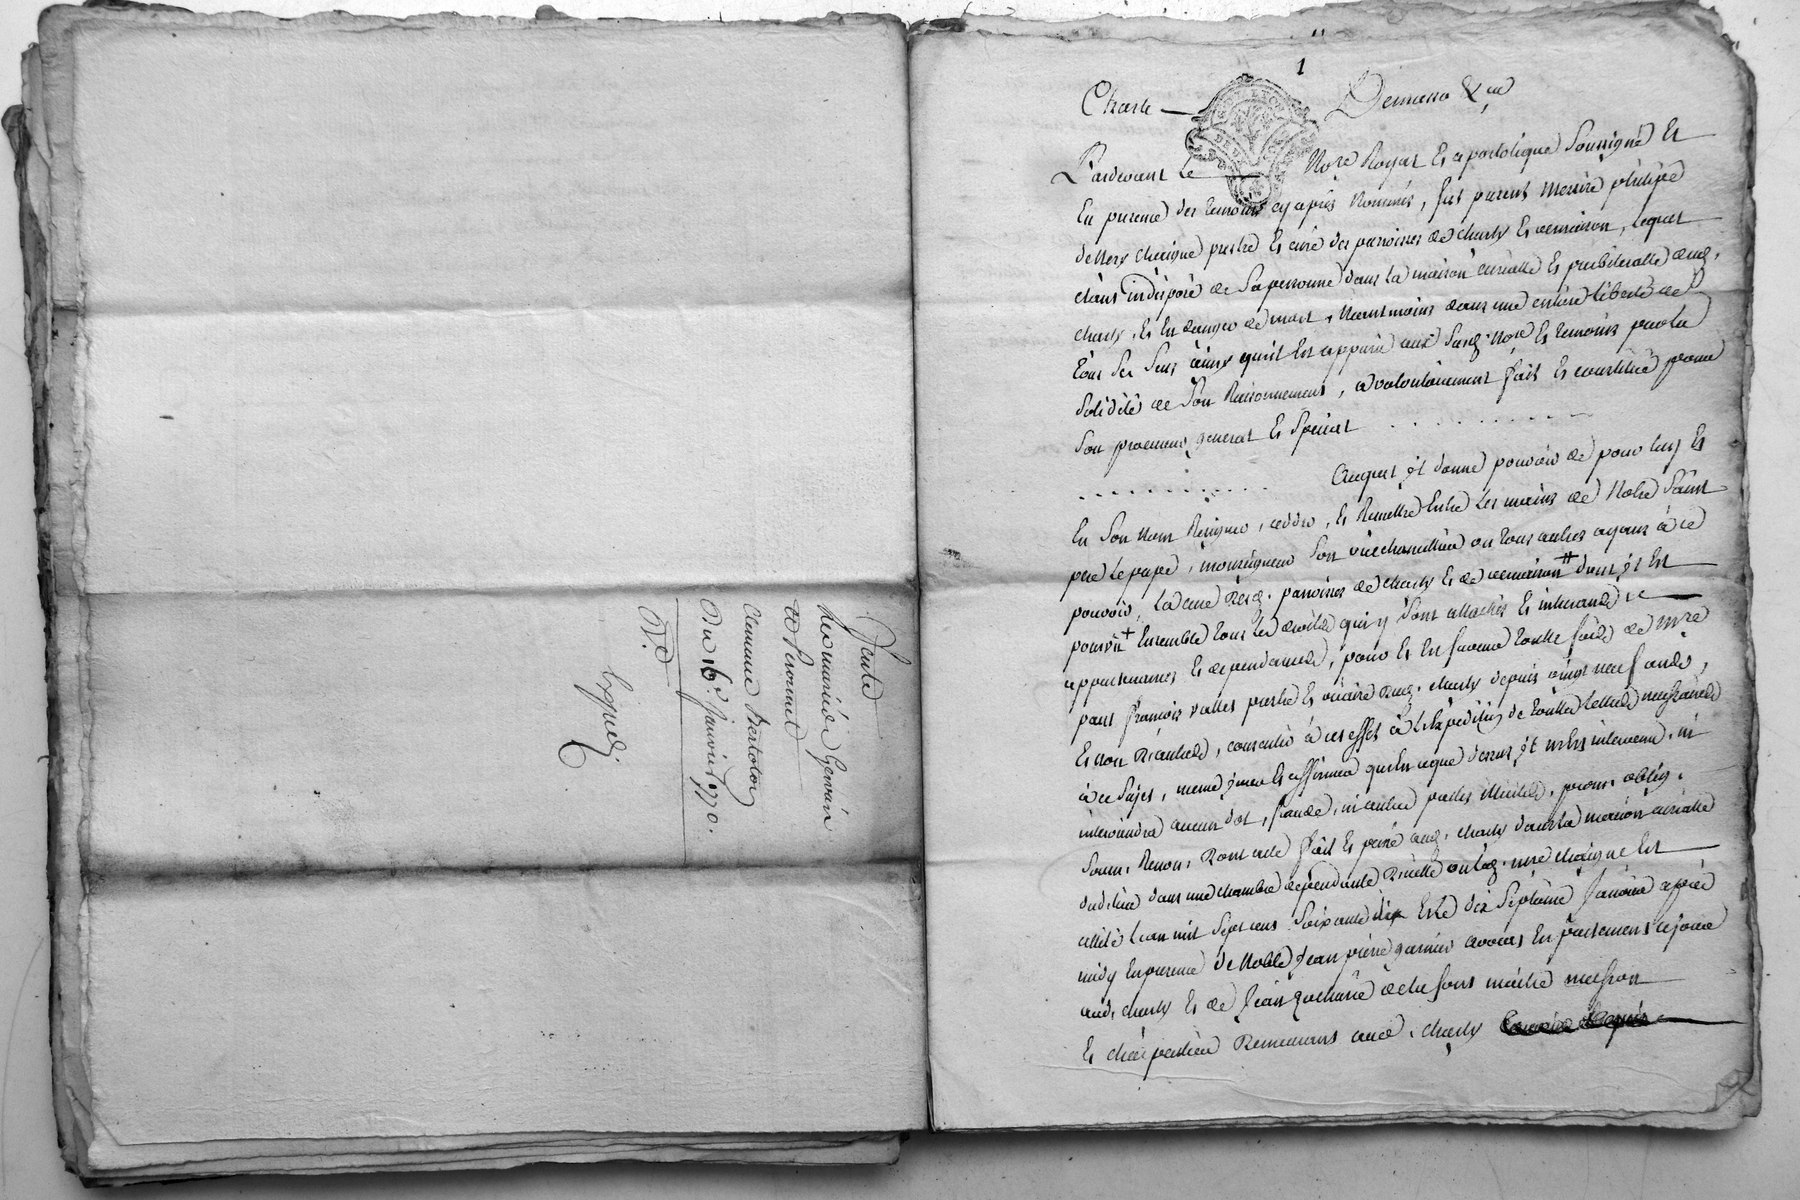 Vente
Par mariée Gervais
et Perronnet
Clemence Bertolon
Du 16e. Janvier 1770.
Expedn.
1
Charle
Pardevant le Nore Royal Et apostolique Soussigné Et
En presence des temoins cy après Nommés, fut present Messire philippe
chaigne prestre Et curé des parroisses de charly Et vernaison, lequel
étant indisposé de Sa personne dans la maison curialle Et presbiteralle dud.
charly, Et En danger de mort, Neantmoins dans une entiere liberté de
tous Ses Sens ainsy qu'il Est apparu aux Susd. Nore Et temoins par la
Solidité de Son Raisonnement, a volontairement fait Et constitué pour
Son procureur general Et Special . . . . . . . . .
. . . . . . . . . . . Auquel il donne pouvoir de pour luy Et
En Son Nom Resigner, ceder, Et Remettre Entre Les mains de Notre Saint
pere Le pape, monseigneur Son vicechancellier ou tous autres ayant à ce
pouvoir, La cure Desd. parroisses de charly Et de vernaison # dont il Est
pourvû + Ensemble tous les droits qui y Sont attachés Et
appartenances Et dependances, pour Et En faveur toutte fois de Mre
françois valles prestre Et vicaire dud. charly depuis vingt neuf années,
Et non autrement, consentir à ces effet à L'Expedition de touttes Lettres necessaires
à ce Sujet, meme jurer Et affirmer qu'En ce que dessus il n'Est intervenu, ni
interviendra aucun dol, fraude, ni autres pactes illicites, prom. oblig.
Soum. Renon. Dont acte fait Et passé aud. charly dans la maison curialle
dud. lieu dans une chambre dependante d'icelle où led. mre chaigne Est
allité L'an mil Sept cens Soixante dix Et Le dix Septième Janvier après
midy En presence de Noble Jean pierre garnier avocat En parlement
aud. charly Et de Jean maitre masson
Et charpentier Demeurant aud. charly